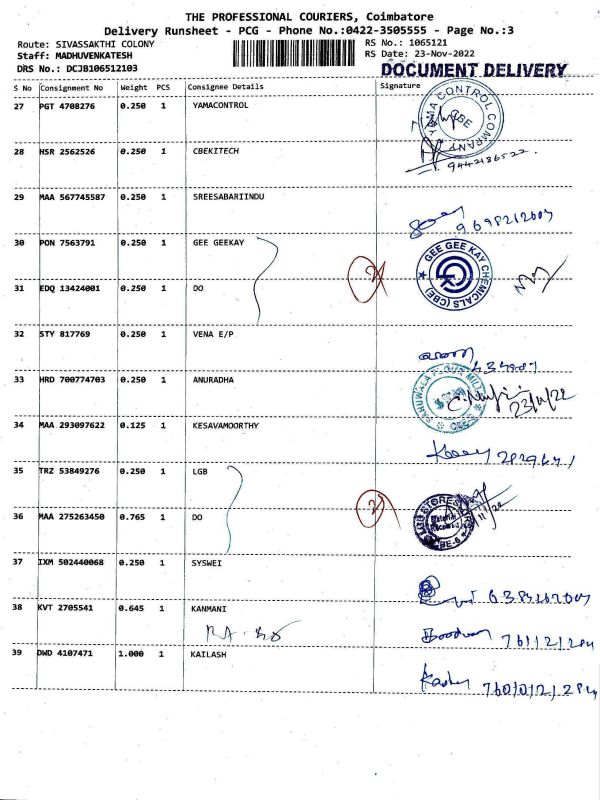 THE PROFESSIONAL COURIERS, Coimbatore
Delivery Runsheet - PCG - Phone No.:0422-3505555 - Page No.:3
Route: SIVASSAKTHI COLONY
RS No.: 1065121
Staff: MADHUVENKATESH
RS Date: 23-Nov-2022
DRS No.: DCJB106512103
DOCUMENT DELIVERY
S No Consignment No Weight PCS Consignee Details Signature
27 PGT 4708276 0.250 1 YAMACONTROL
YAMA CONTROL COMPANY
CBE
9442186522
28 HSR 2562526 0.250 1 CBEKITECH
29 MAA 567745587 0.250 1 SREESABARIINDU
30 PON 7563791 0.250 1 GEE GEEKAY
GEE GEE KAY CHEMICALS (CBE)
31 EDQ 13424001 0.250 1 DO
2
32 STY 817769 0.250 1 VENA E/P
33 HRD 700774703 0.250 1 ANURADHA
SAHUWALA FLOUR MILL
23/11/22
34 MAA 293097622 0.125 1 KESAVAMOORTHY
35 TRZ 53849276 0.250 1 LGB
36 MAA 275263450 0.765 1 DO
2
37 IXM 502440068 0.250 1 SYSWEI
38 KVT 2705541 0.645 1 KANMANI
39 DWD 4107471 1.000 1 KAILASH